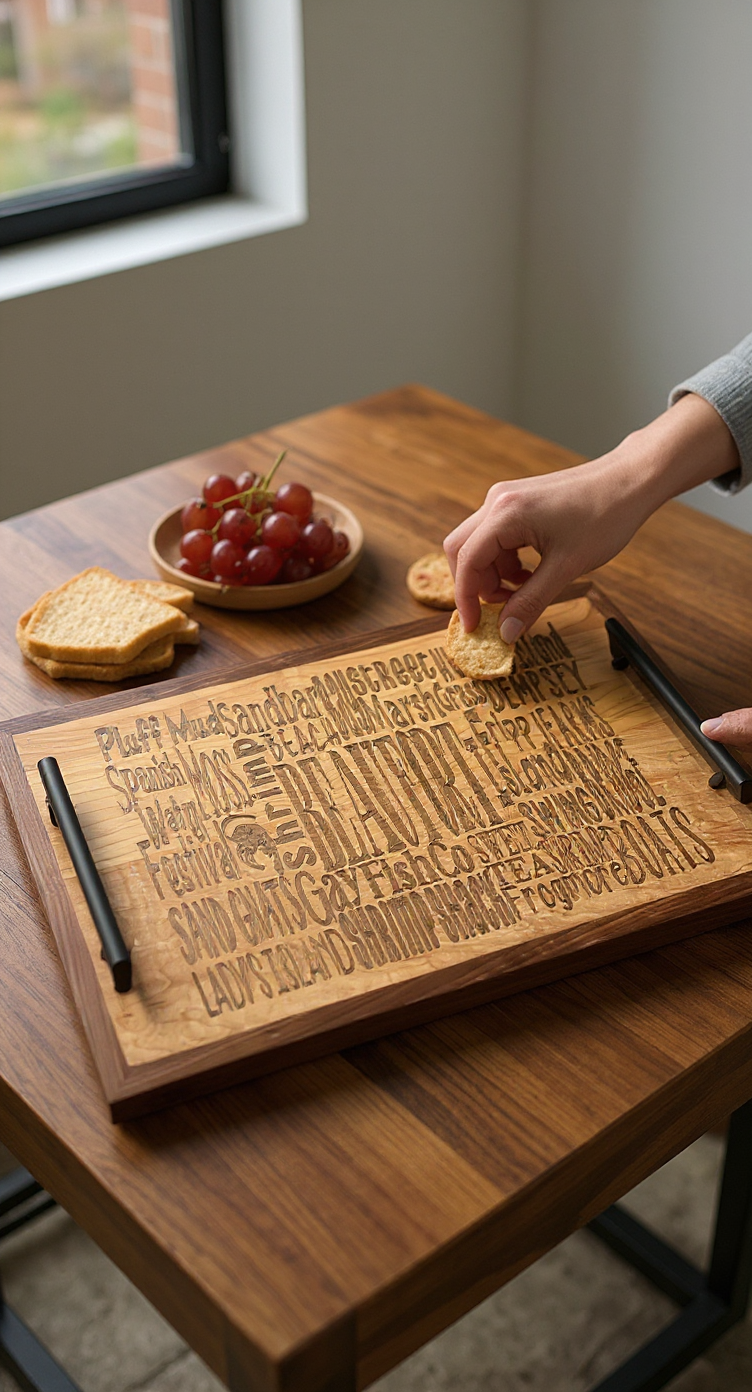 Pluff Mud Sandbar Street Island
Spanish Moss BEACH Marsh Grass DEMPSEY
Water Festival Shrimp BEAUFORT Fripp Island
SAND GNATS Gay Fish Co SWEET TEA SWING BRIDGE
LADYS ISLAND SHRIMP SHACK Frogmore BOATS